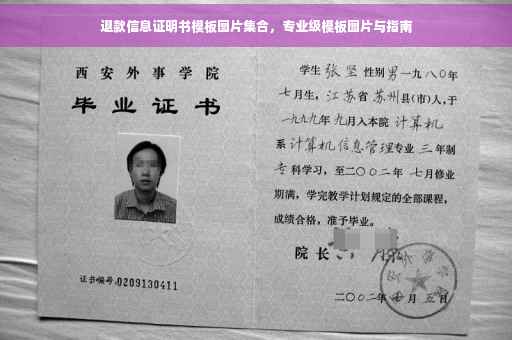 退款信息证明书模板图片集合，专业级模板图片与指南
西安外事学院
毕业证书
证书编号:0209130411
学生 张坚 性别 男 一九八〇年
七月生，江苏省 苏州县(市)人，于
一九九九年 九月入本院 计算机
系 计算机信息管理专业 三 年制
专 科学习，至二〇〇二年 七月修业
期满，学完教学计划规定的全部课程，
成绩合格，准予毕业。
院长
二〇〇二年 月 五日